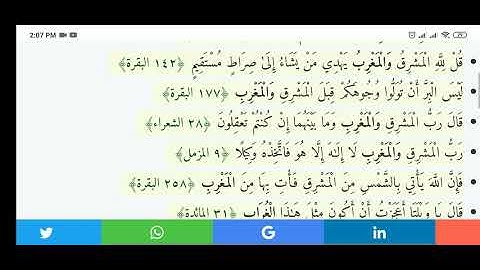 2:07 PM
قُلْ لِلَّهِ الْمَشْرِقُ وَالْمَغْرِبُ يَهْدِي مَنْ يَشَاءُ إِلَىٰ صِرَاطٍ مُسْتَقِيمٍ ﴿١٤٢ البقرة﴾
لَيْسَ الْبِرَّ أَنْ تُوَلُّوا وُجُوهَكُمْ قِبَلَ الْمَشْرِقِ وَالْمَغْرِبِ ﴿١٧٧ البقرة﴾
قَالَ رَبُّ الْمَشْرِقِ وَالْمَغْرِبِ وَمَا بَيْنَهُمَا إِنْ كُنْتُمْ تَعْقِلُونَ ﴿٢٨ الشعراء﴾
رَبُّ الْمَشْرِقِ وَالْمَغْرِبِ لَا إِلَـٰهَ إِلَّا هُوَ فَاتَّخِذْهُ وَكِيلًا ﴿٩ المزمل﴾
فَإِنَّ اللَّهَ يَأْتِي بِالشَّمْسِ مِنَ الْمَشْرِقِ فَأْتِ بِهَا مِنَ الْمَغْرِبِ ﴿٢٥٨ البقرة﴾
قَالَ يَا وَيْلَتَا أَعَجَزْتُ أَنْ أَكُونَ مِثْلَ هَـٰذَا الْغُرَابِ ﴿٣١ المائدة﴾